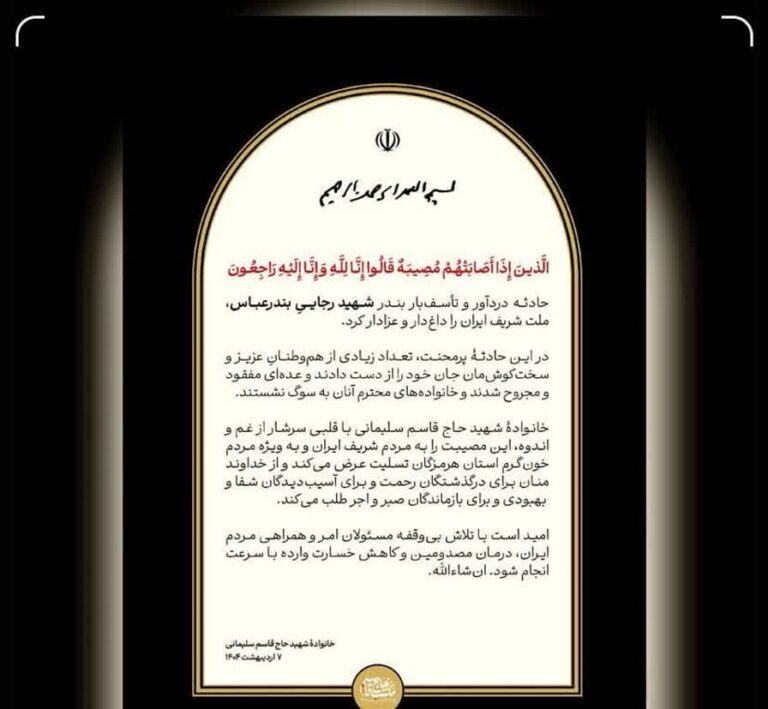 بسم الله الرحمن الرحیم
الَّذینَ إِذَا أَصَابَتْهُمْ مُصِیبَهٌ قَالُوا إِنَّا لِلَّهِ وَإِنَّا إِلَیْهِ رَاجِعُونَ
حادثه دردآور و تأسف‌بار بندر شهید رجاییِ بندرعباس،
ملت شریف ایران را داغ‌دار و عزادار کرد.
در این حادثهٔ پرمحنت، تعداد زیادی از هم‌وطنانِ عزیز و
سخت‌کوش‌مان جان خود را از دست دادند و عده‌ای مفقود
و مجروح شدند و خانواده‌های محترمِ آنان به سوگ نشستند.
خانوادهٔ شهید حاج قاسم سلیمانی با قلبی سرشار از غم و
اندوه، این مصیبت را به مردم شریف ایران و به ویژه مردم
خون‌گرم استان هرمزگان تسلیت عرض می‌کند و از خداوند
منان برای درگذشتگان رحمت و برای آسیب‌دیدگان شفا و
بهبودی و برای بازماندگان صبر و اجر طلب می‌کند.
امید است با تلاش بی‌وقفه مسئولان امر و همراهی مردم
ایران، درمان مصدومین و کاهش خسارت وارده با سرعت
انجام شود. ان‌شاءالله.
خانوادهٔ شهید حاج قاسم سلیمانی
۷ اردیبهشت ۱۴۰۴